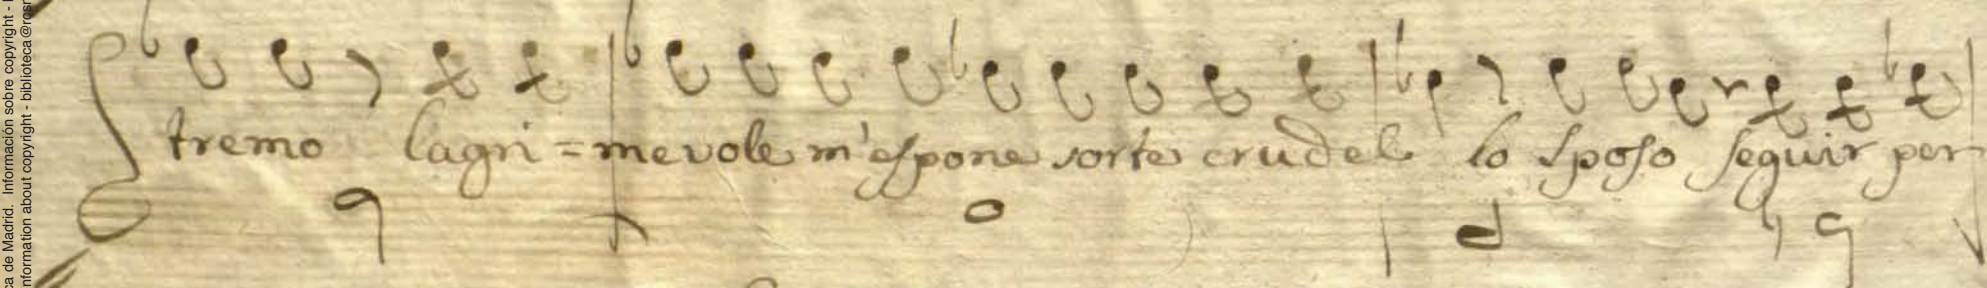 ca de Madrid. Información sobre copyright -
nformation about copyright - biblioteca@
tremo lagri=mevole m'espone sorte crudel lo sposo seguir per